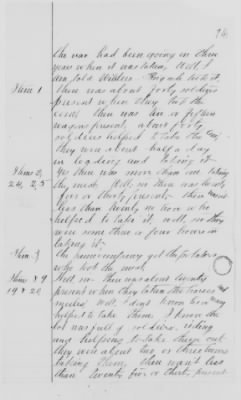 The war had been going on three
years when it was taken. Well, I
was told Wilders Brigade took it,
Item 1 there was about forty soldiers
present when they took the
corn, there was ten or fifteen
wagons present, about forty
soldiers helped to take the corn,
they were about half a day
in loading and taking it
Items 2, Yes there was more than one taking
24, 25 the meat. Well, no there was twenty
five or thirty present, there want
less than twenty no how as he
helped to take it, well, no they
were some three or four hours in
taking it.
Item 3 The same company got the potatoes
who took the meat.
Items & 9 Well, no there was about twenty
19 & 20 present when they taken the horses and
mules. Well, I don't know how many
helped to take them. I know the
lot was full of soldiers, riding
and helping to take them out
they were about two or three hours
taking them, there want less
than twenty five or thirty present